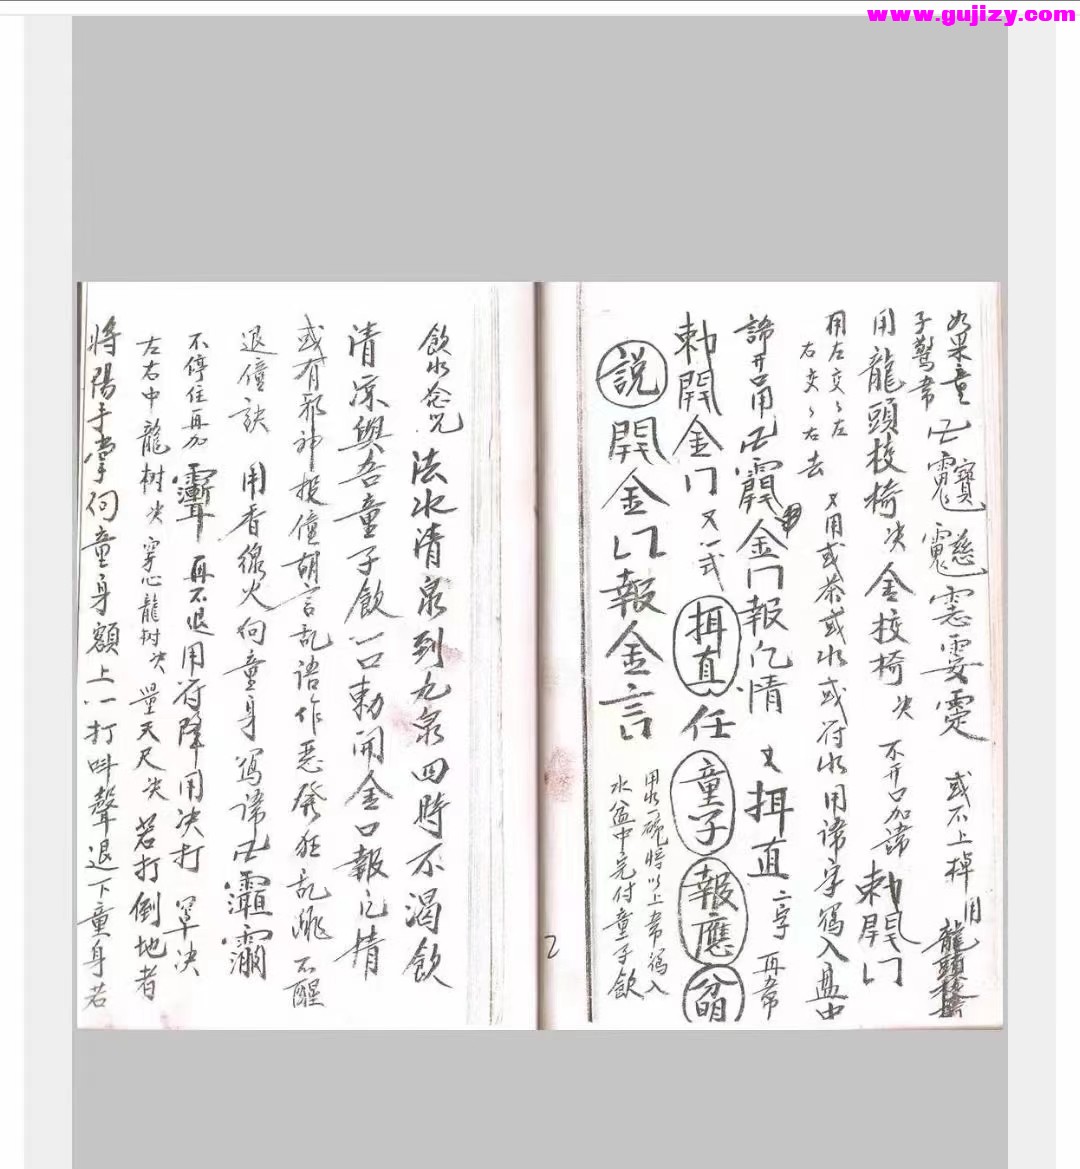 www.gujizy.com
如果童
子驚常 卍 或不上棹用
龍頭校椅
用龍頭校椅决 金校椅决 不开口加諦 勅開门
用左交々左
右交々右去
又用或茶或水或符水用諦字寫入盘中
諦开 卍 金门報亿情 又挕直二字 再常
勅開金门 又一式 挕直 任 童子 報應
說 開金口報金言
用水一碗将以上常寫入
水盆中完付童子飲
2
飲水咒 法水清泉列九泉四時不渴飲
清凉與吾童子飲一口勅開金口報亿情
或有邪神投僮胡言乱語作恶發狂乱跳不醒
退僮訣 用香線火向童身寫諦卍
不停住再加 再不退用符降用决打罩决
左右中龍树决 穿心龍树决 量天尺决 若打倒地者
将陽手掌向童身額上一打呌聲退下童身若